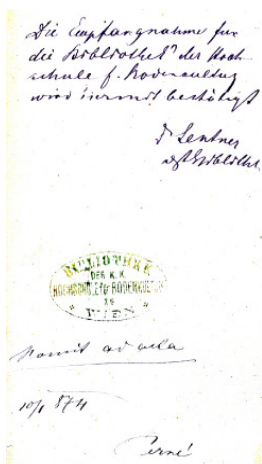 Die Empfangnahme für
die Bibliothek der Hoch
schule f. Bodencultur
wird hiermit bestätigt
D Lentner
BIBLIOTHEK
DER K. K.
HOCHSCHULE FÜR BODENCULTUR
IN
WIEN
Somit ad acta
10/1 874